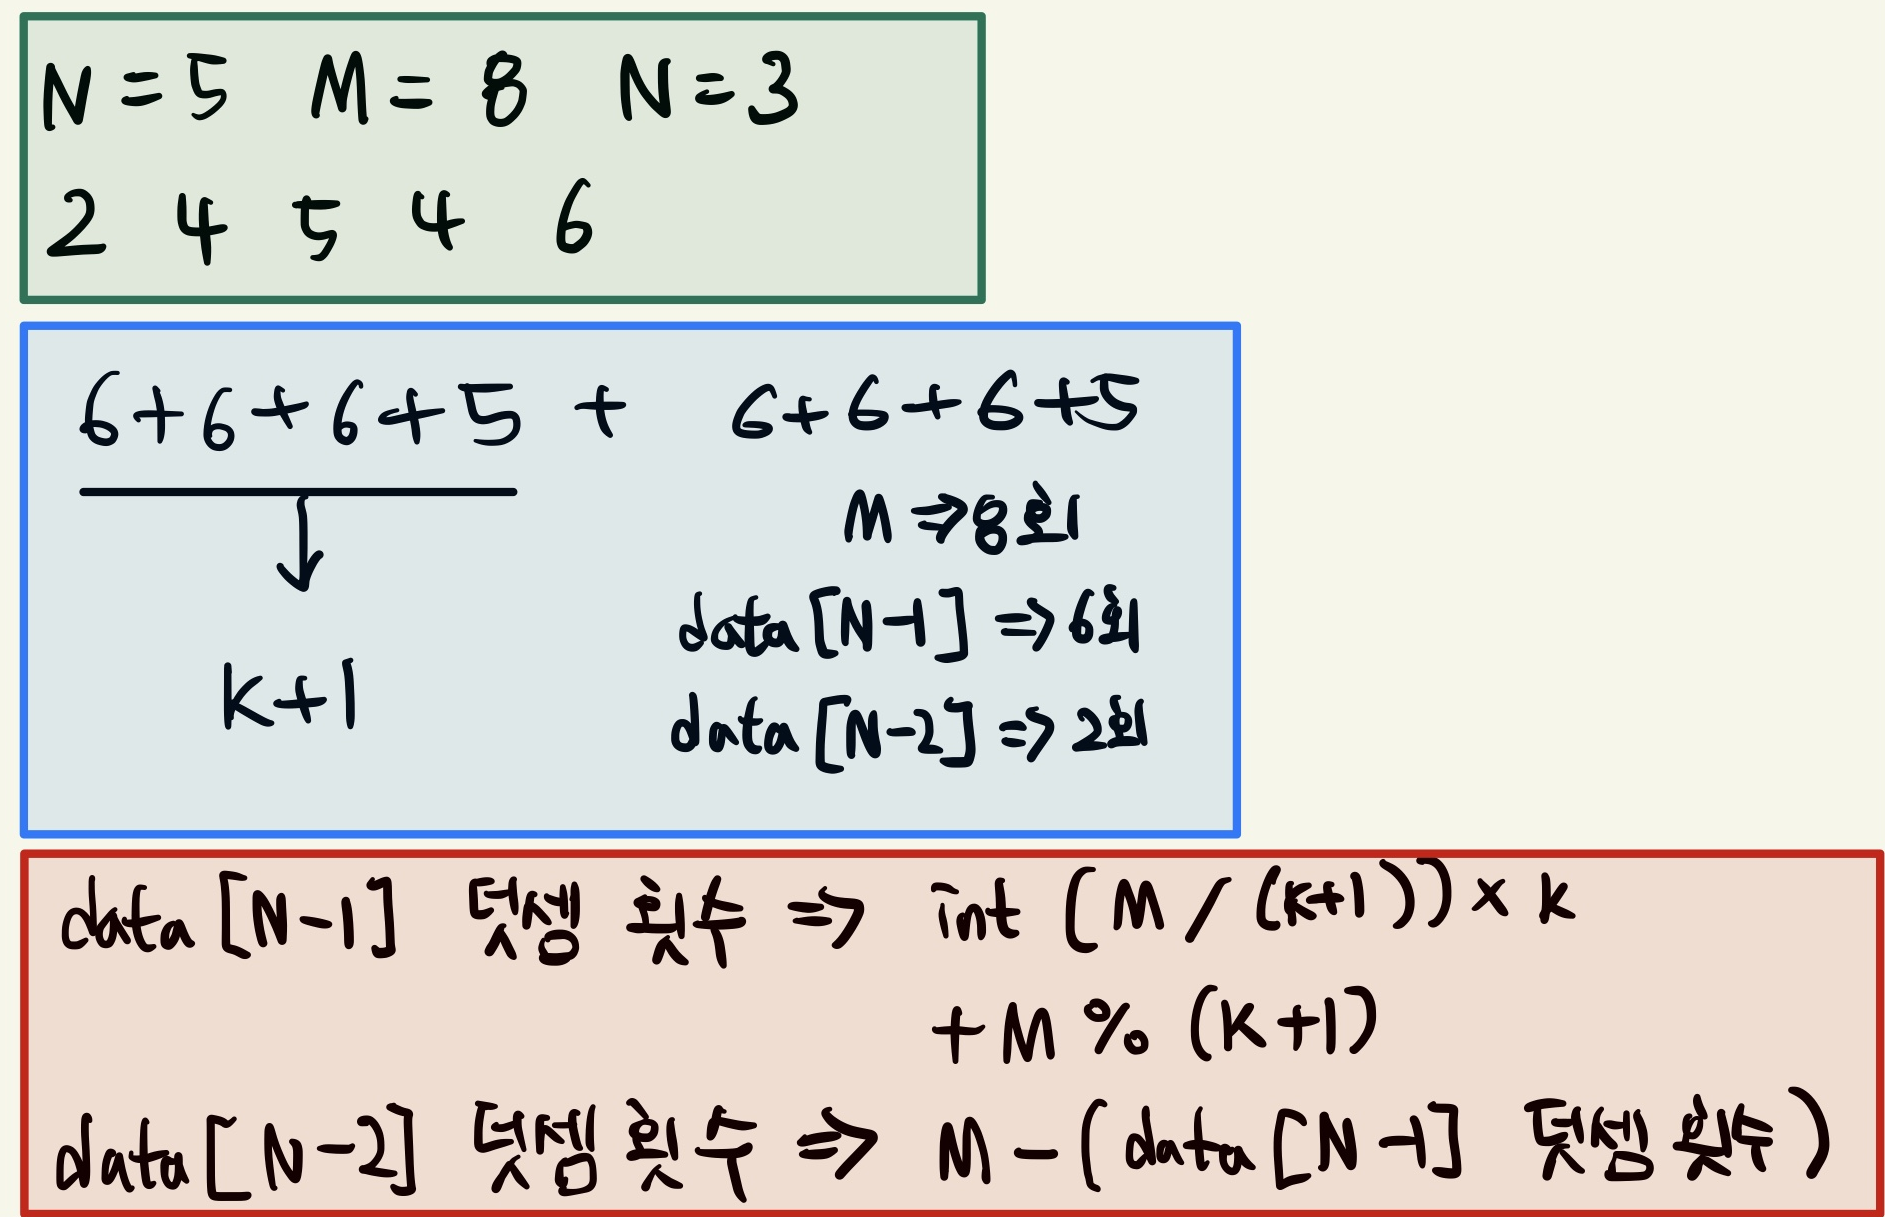 N = 5 M = 8 N = 3
2 4 5 4 6
6+6+6+5 + 6+6+6+5
M ⇒ 8회
data [N-1] ⇒ 6회
K+1
data [N-2] ⇒ 2회
data [N-1] 덧셈 횟수 ⇒ int (M / (k+1)) × k
+ M % (K+1)
data [N-2] 덧셈 횟수 ⇒ M - (data [N-1] 덧셈 횟수)